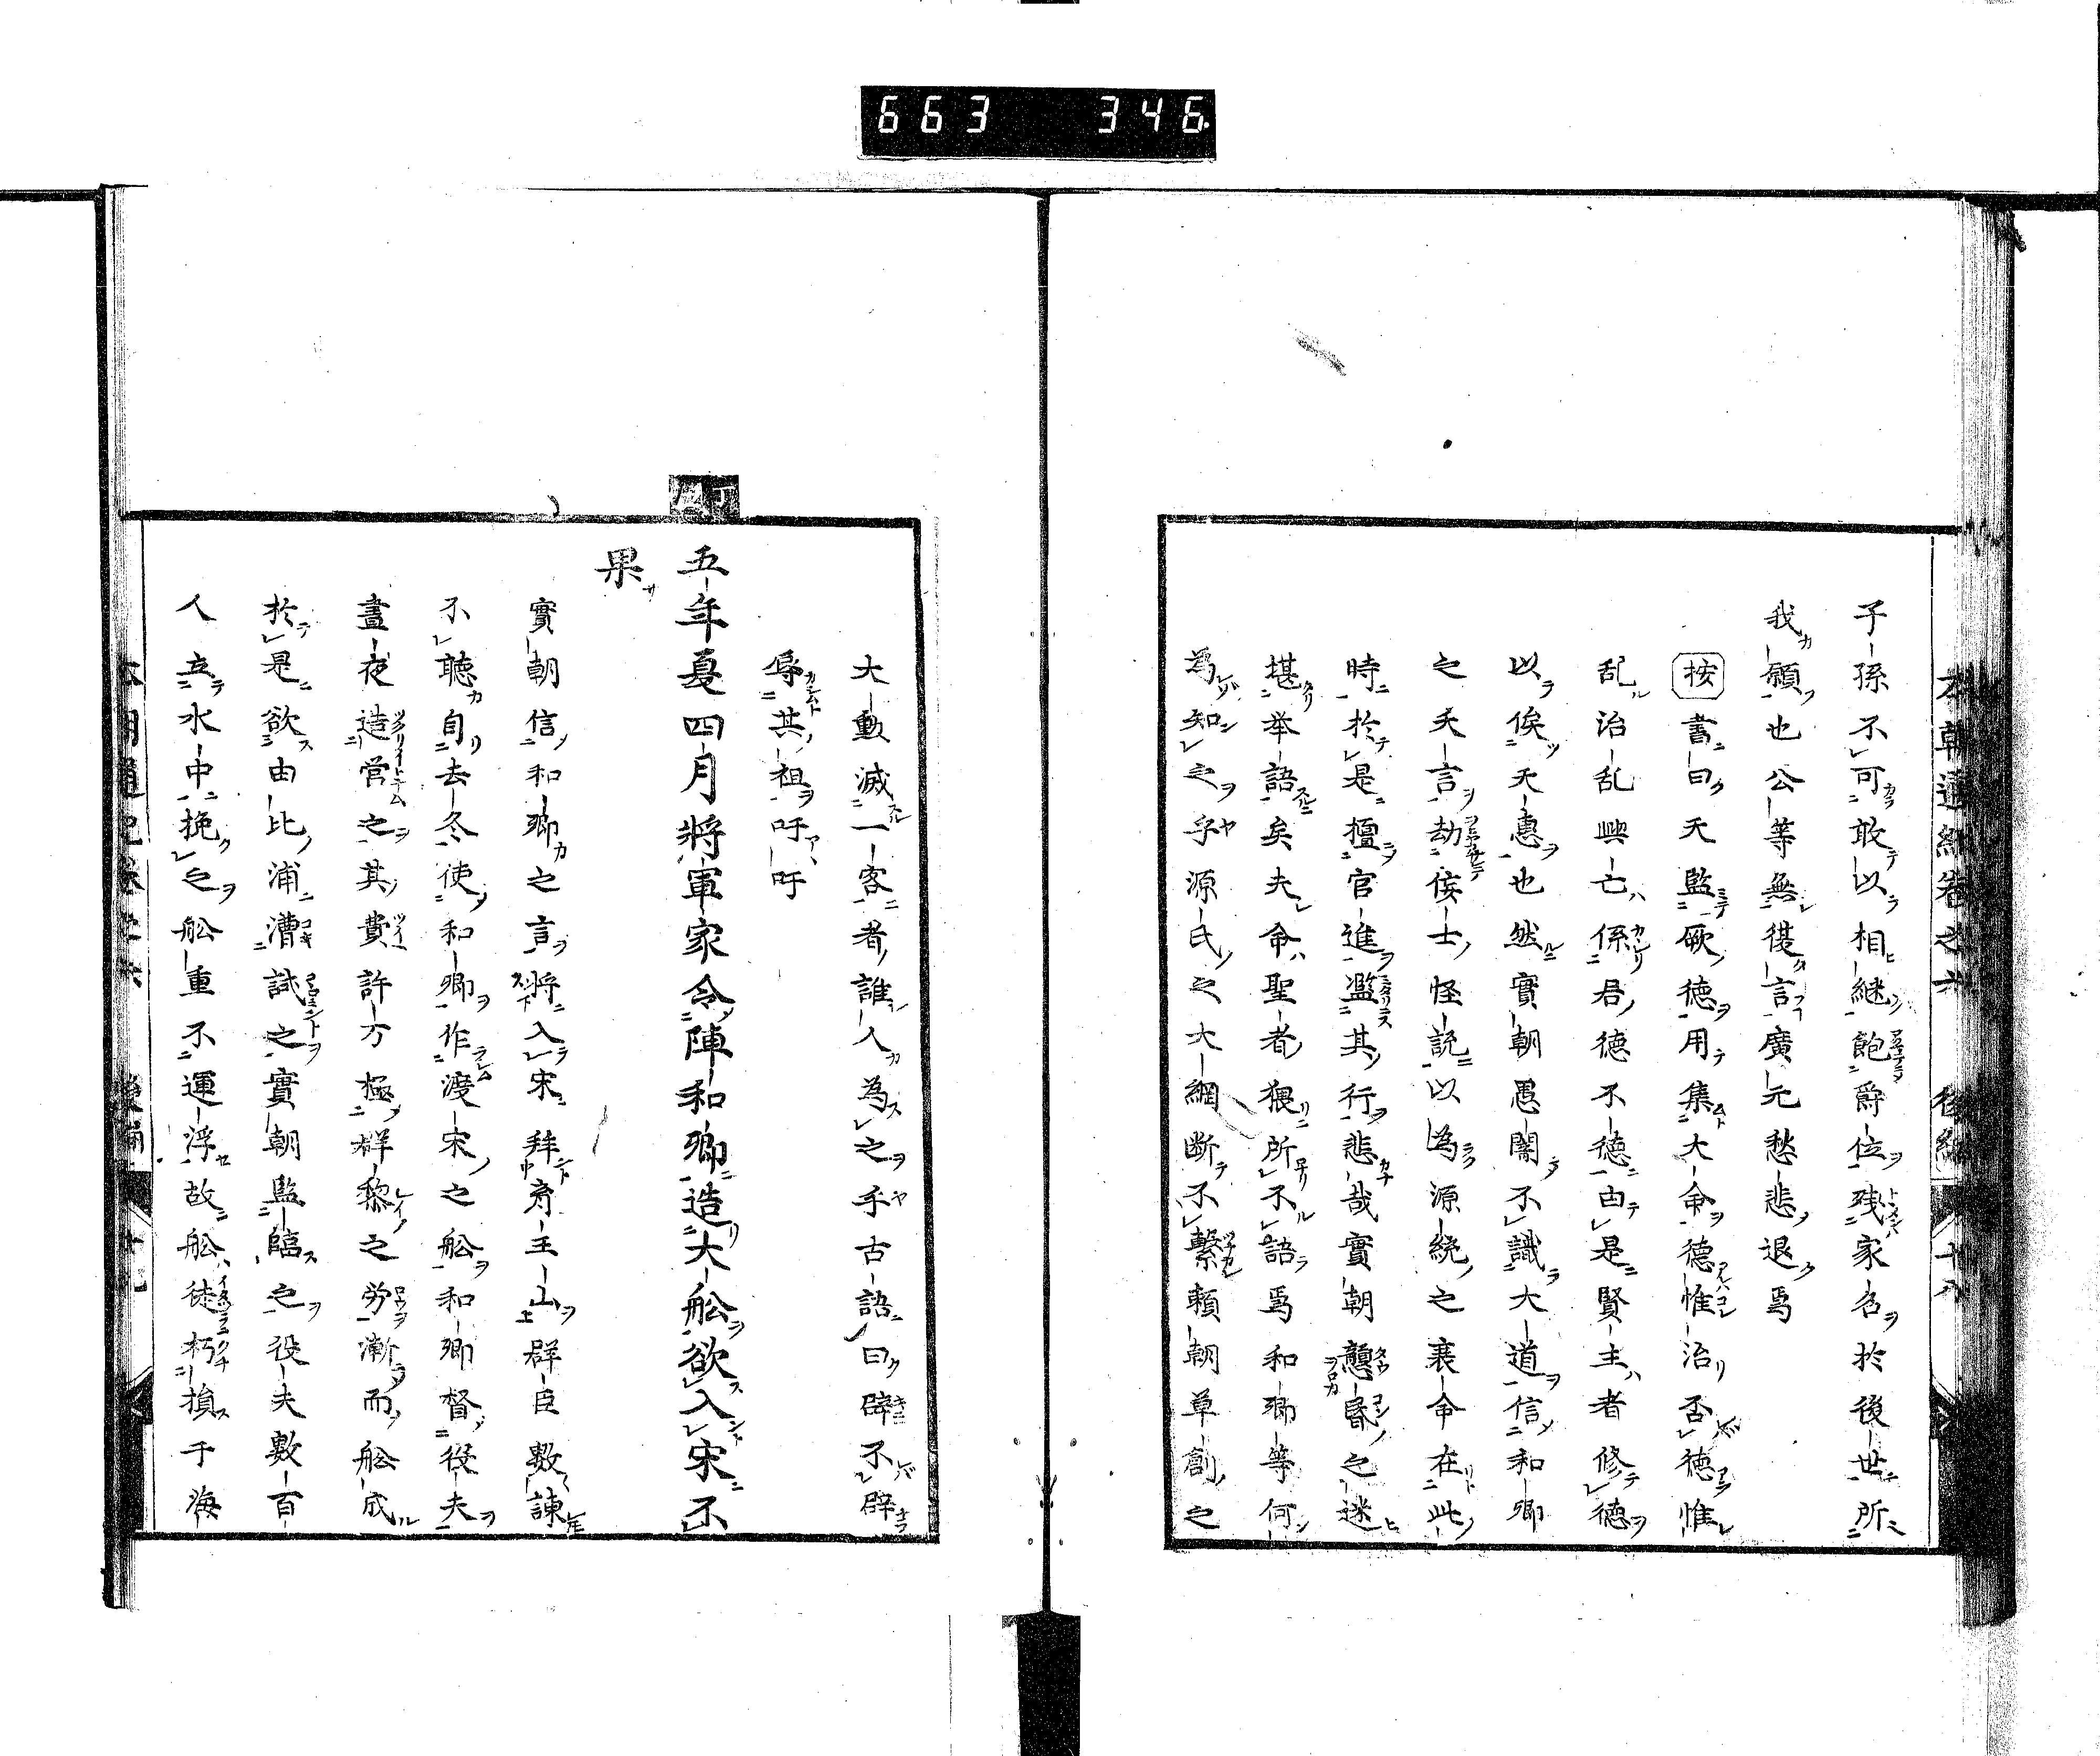 663 346
子孫不可敢以相継飽爵位残家名於後世所
我願也公等無復言廣元愁悲退焉
按書曰天監厥徳用集大命徳惟治否徳惟
乱治乱興亡係君徳不徳由是賢主者修徳
以俟天憲也然實朝愚闇不識大道信和卿
之夭言劫侫士怪説以為源統之衰命在此
時於是擅官進濫其行悲哉實朝戇昏之迷
堪挙語矣夫命聖者猥所不語焉和卿等何
為知之乎源氏之大綱断不繋頼朝草創之
大勳滅一客者誰人為之乎古語曰辟不辟
辱其祖吁吁
五年夏四月將軍家令陣和卿造大舩欲入宋不
果
實朝信和卿之言將入宋拜育王山群臣數諌
不聴自去冬使和卿作渡宋之舩和卿督役夫
晝夜造営之其費許万極群黎之労漸而舩成
於是欲由比浦漕試之實朝監臨之役夫數百
人立水中挽之舩重不運浮故舩徒朽損于海